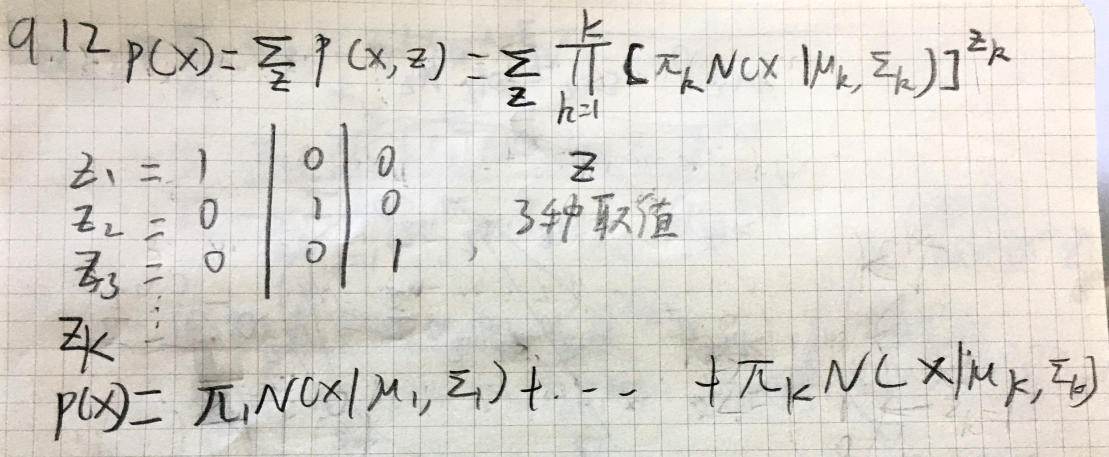 9.12 p(x)= Σ_z p(x,z) = Σ_z ∏_{k=1}^{K} [π_k N(x|μ_k, Σ_k)]^{z_k}
z₁ = 1 | 0 | 0 z
z₂ = 0 | 1 | 0 3种取值
z₃ = 0 | 0 | 1
z_K ⋮
p(x)= π₁N(x|μ₁, Σ₁)+ --- +π_k N(x|μ_k, Σ_k)